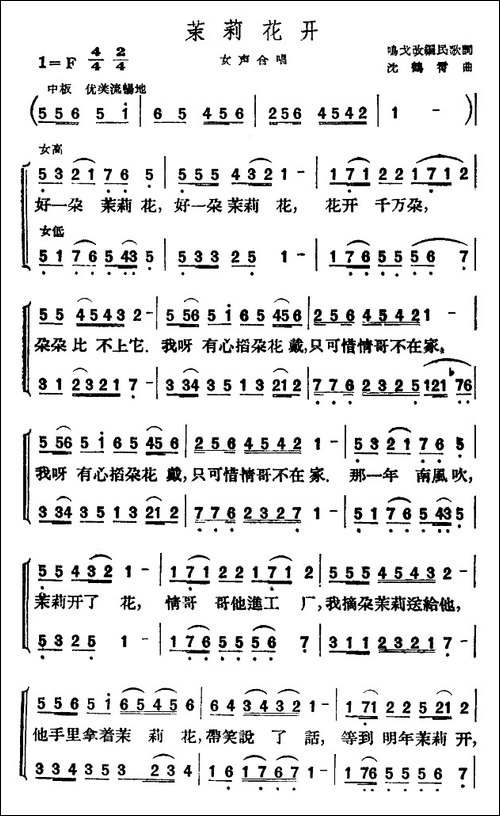 茉莉花开
1=F 4/4 2/4
女声合唱
鸣戈改编民歌詞
沈鶴霄 曲
中板 优美流暢地
(5 5 6 5 i | 6 5 4 5 6 | 2 5 6 4 5 4 2 | 1 - )
女高
5 3 2 1 7 6 5 | 5 5 5 4 3 2 1 - | 1 7 1 2 2 1 7 1 2
好一朵 茉莉 花, 好一朵 茉莉 花, 花开 千万朵,
女低
5 1 7 6 5 4 3 5 | 5 3 3 2 5 1 - | 1 7 6 5 5 5 6 7
5 5 4 5 4 3 2 | 5 5 6 5 i 6 5 4 5 6 | 2 5 6 4 5 4 2 1
朵朵 比 不上它. 我呀 有心掐朵花 戴,只可惜情哥不在家,
3 1 2 3 2 1 7 | 3 3 4 3 5 1 3 2 1 2 | 7 7 6 2 3 2 5 1 2 1 7 6
5 5 6 5 i 6 5 4 5 6 | 2 5 6 4 5 4 2 1 - | 5 3 2 1 7 6 5
我呀 有心掐朵花 戴,只可惜情哥不在 家. 那一年 南風吹,
3 3 4 3 5 1 3 2 1 2 | 7 7 6 2 3 2 7 1 - | 5 1 7 6 5 4 3 5
5 5 4 3 2 1 - | 1 7 1 2 2 1 7 1 | 5 5 5 4 5 4 3 2
茉莉开了 花, 情哥 哥他進工 厂,我摘朵茉莉送給他,
5 3 2 5 1 - | 1 7 6 5 5 5 6 7 | 3 1 1 2 3 2 1 7
5 5 6 5 i 6 5 4 5 6 | 6 4 3 4 3 2 1 - | 1 7 1 2 2 5 2 1 2
他手里拿着茉 莉 花,帶笑說 了 話, 等到 明年茉莉开,
3 3 4 3 5 3 2 3 4 | 1 6 1 7 6 7 1 - | 1 7 6 5 5 5 5 7